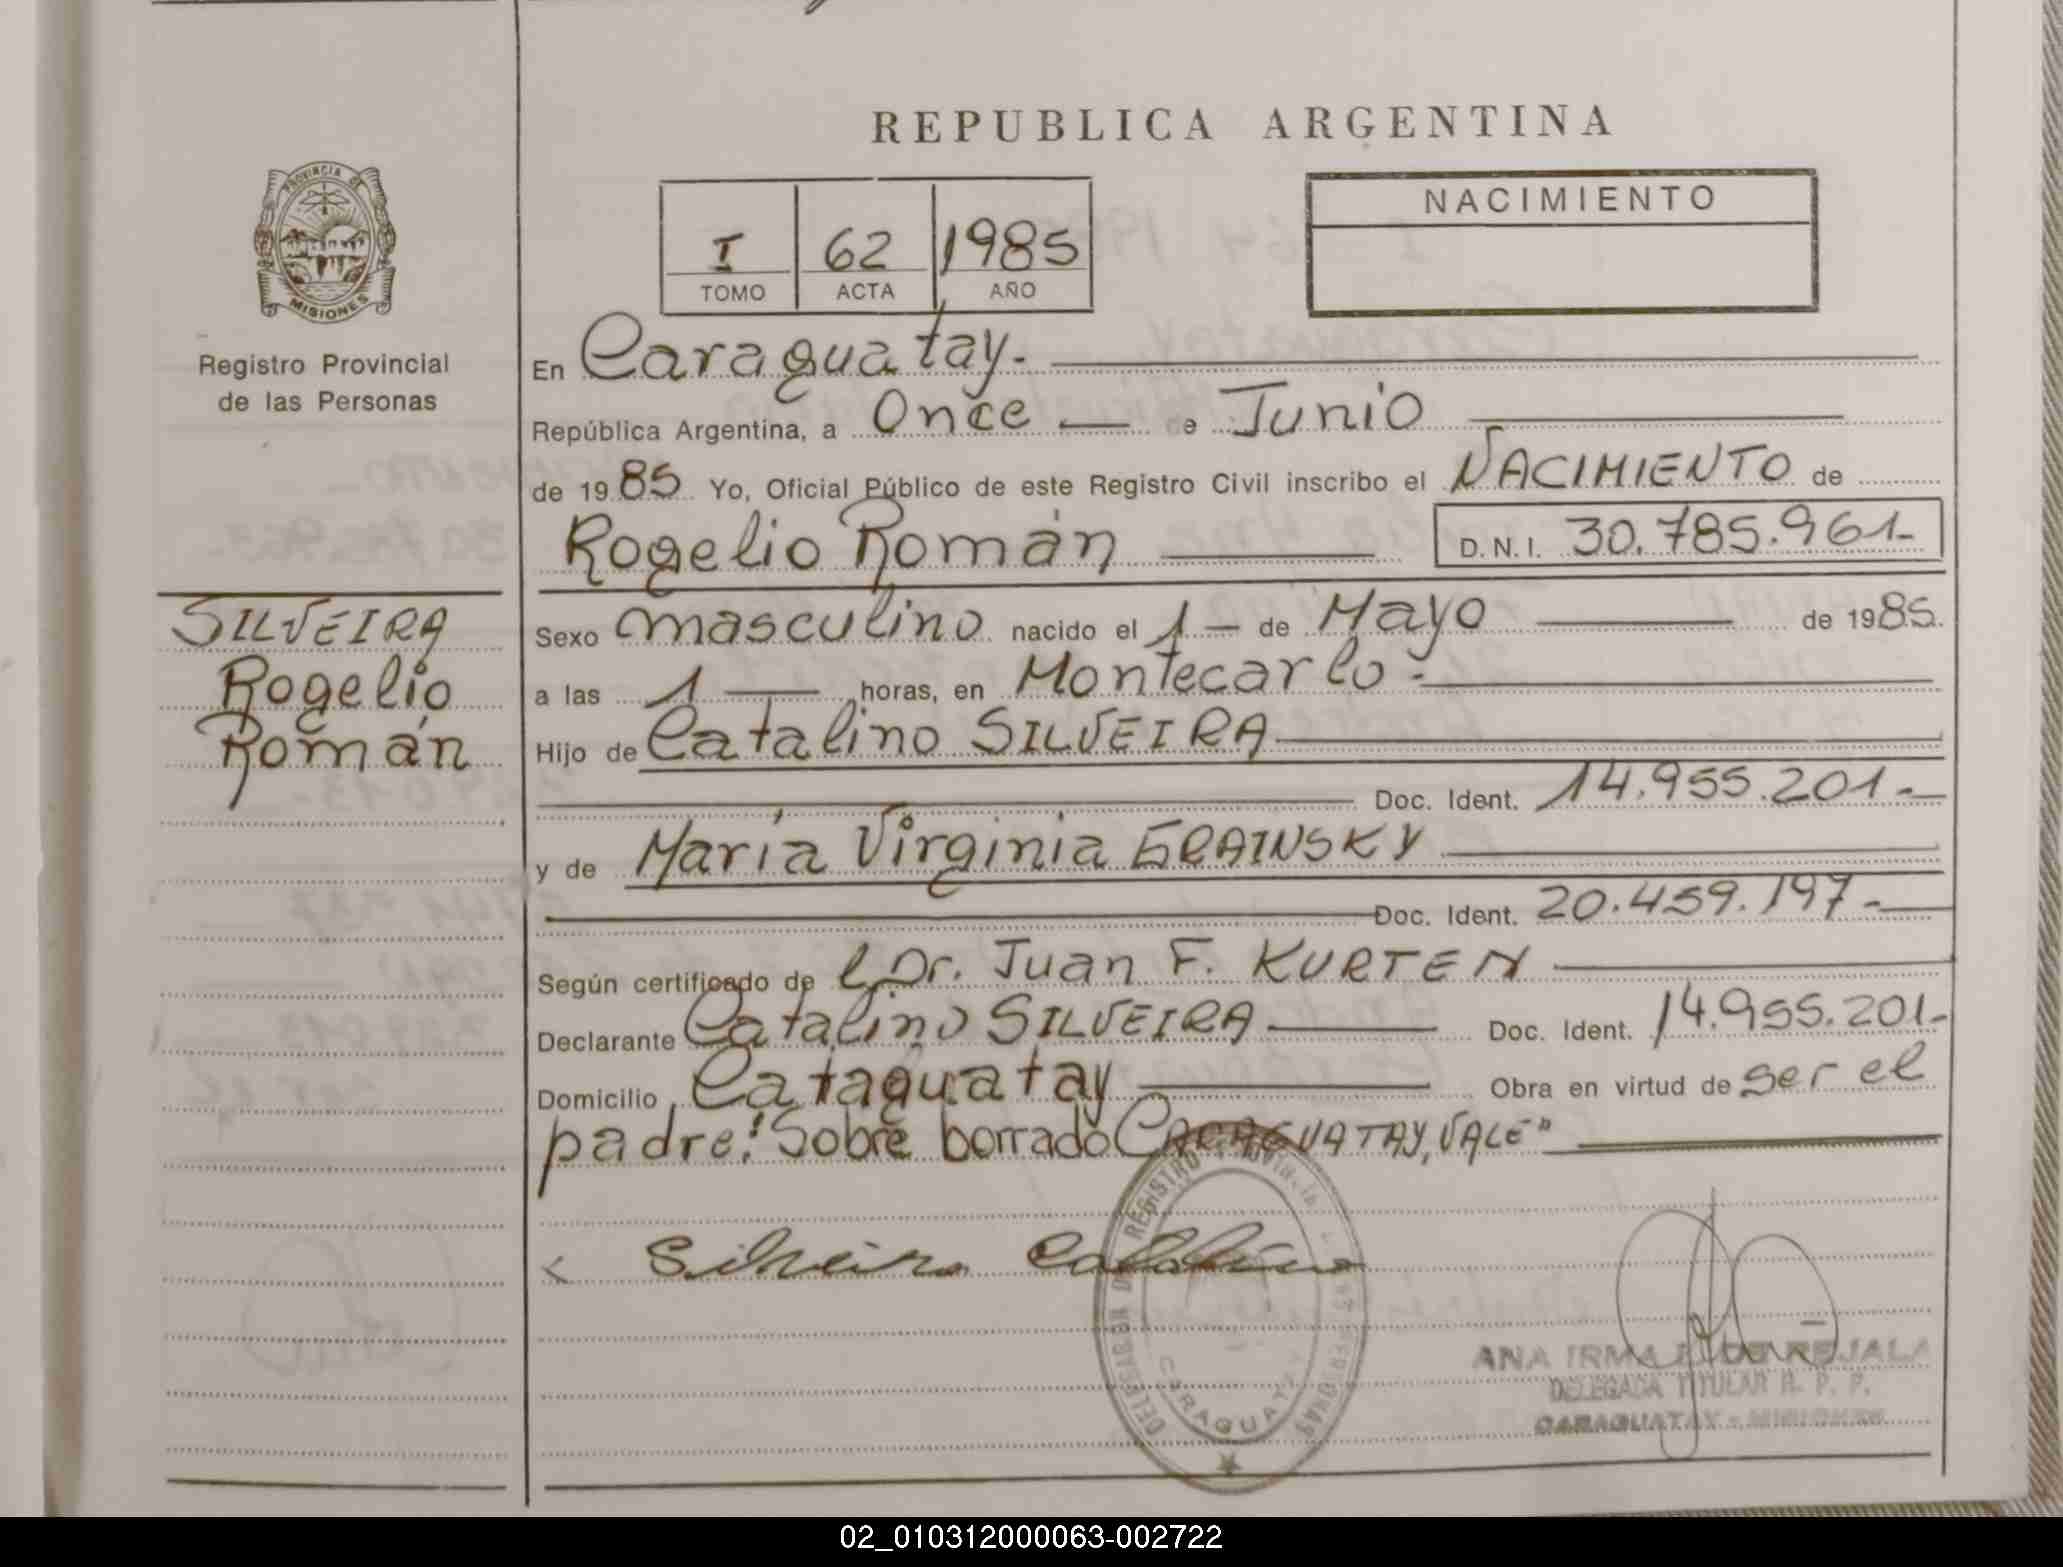 REPUBLICA ARGENTINA
PROVINCIA DE
MISIONES
Registro Provincial
de las Personas
I 62 1985
TOMO ACTA AÑO
NACIMIENTO
En Caraguatay.-
República Argentina, a Once — de Junio
de 1985 Yo, Oficial Público de este Registro Civil inscribo el NACIMIENTO de
Rogelio Román D.N.I. 30.785.961-
SILVEIRA
Rogelio
Román
Sexo masculino nacido el 1 — de Mayo de 1985.
a las 1 — horas, en Montecarlo.-
Hijo de Catalino SILVEIRA
Doc. Ident. 14.955.201.-
y de María Virginia GRAINSKY
Doc. Ident. 20.459.197.-
Según certificado de l Dr. Juan F. KURTEN
Declarante Catalino SILVEIRA Doc. Ident. 14.955.201-
Domicilio Cataguatay Obra en virtud de ser el
padre: "Sobre borrado CARAGUATAY, VALE"
Silveira Catalino
DELEGACION DEL REGISTRO PROVINCIAL DE LAS PERSONAS
CARAGUATAY
ANA IRMA DE REJALA
DELEGADA TITULAR R. P. P.
CARAGUATAY - MISIONES
02_010312000063-002722